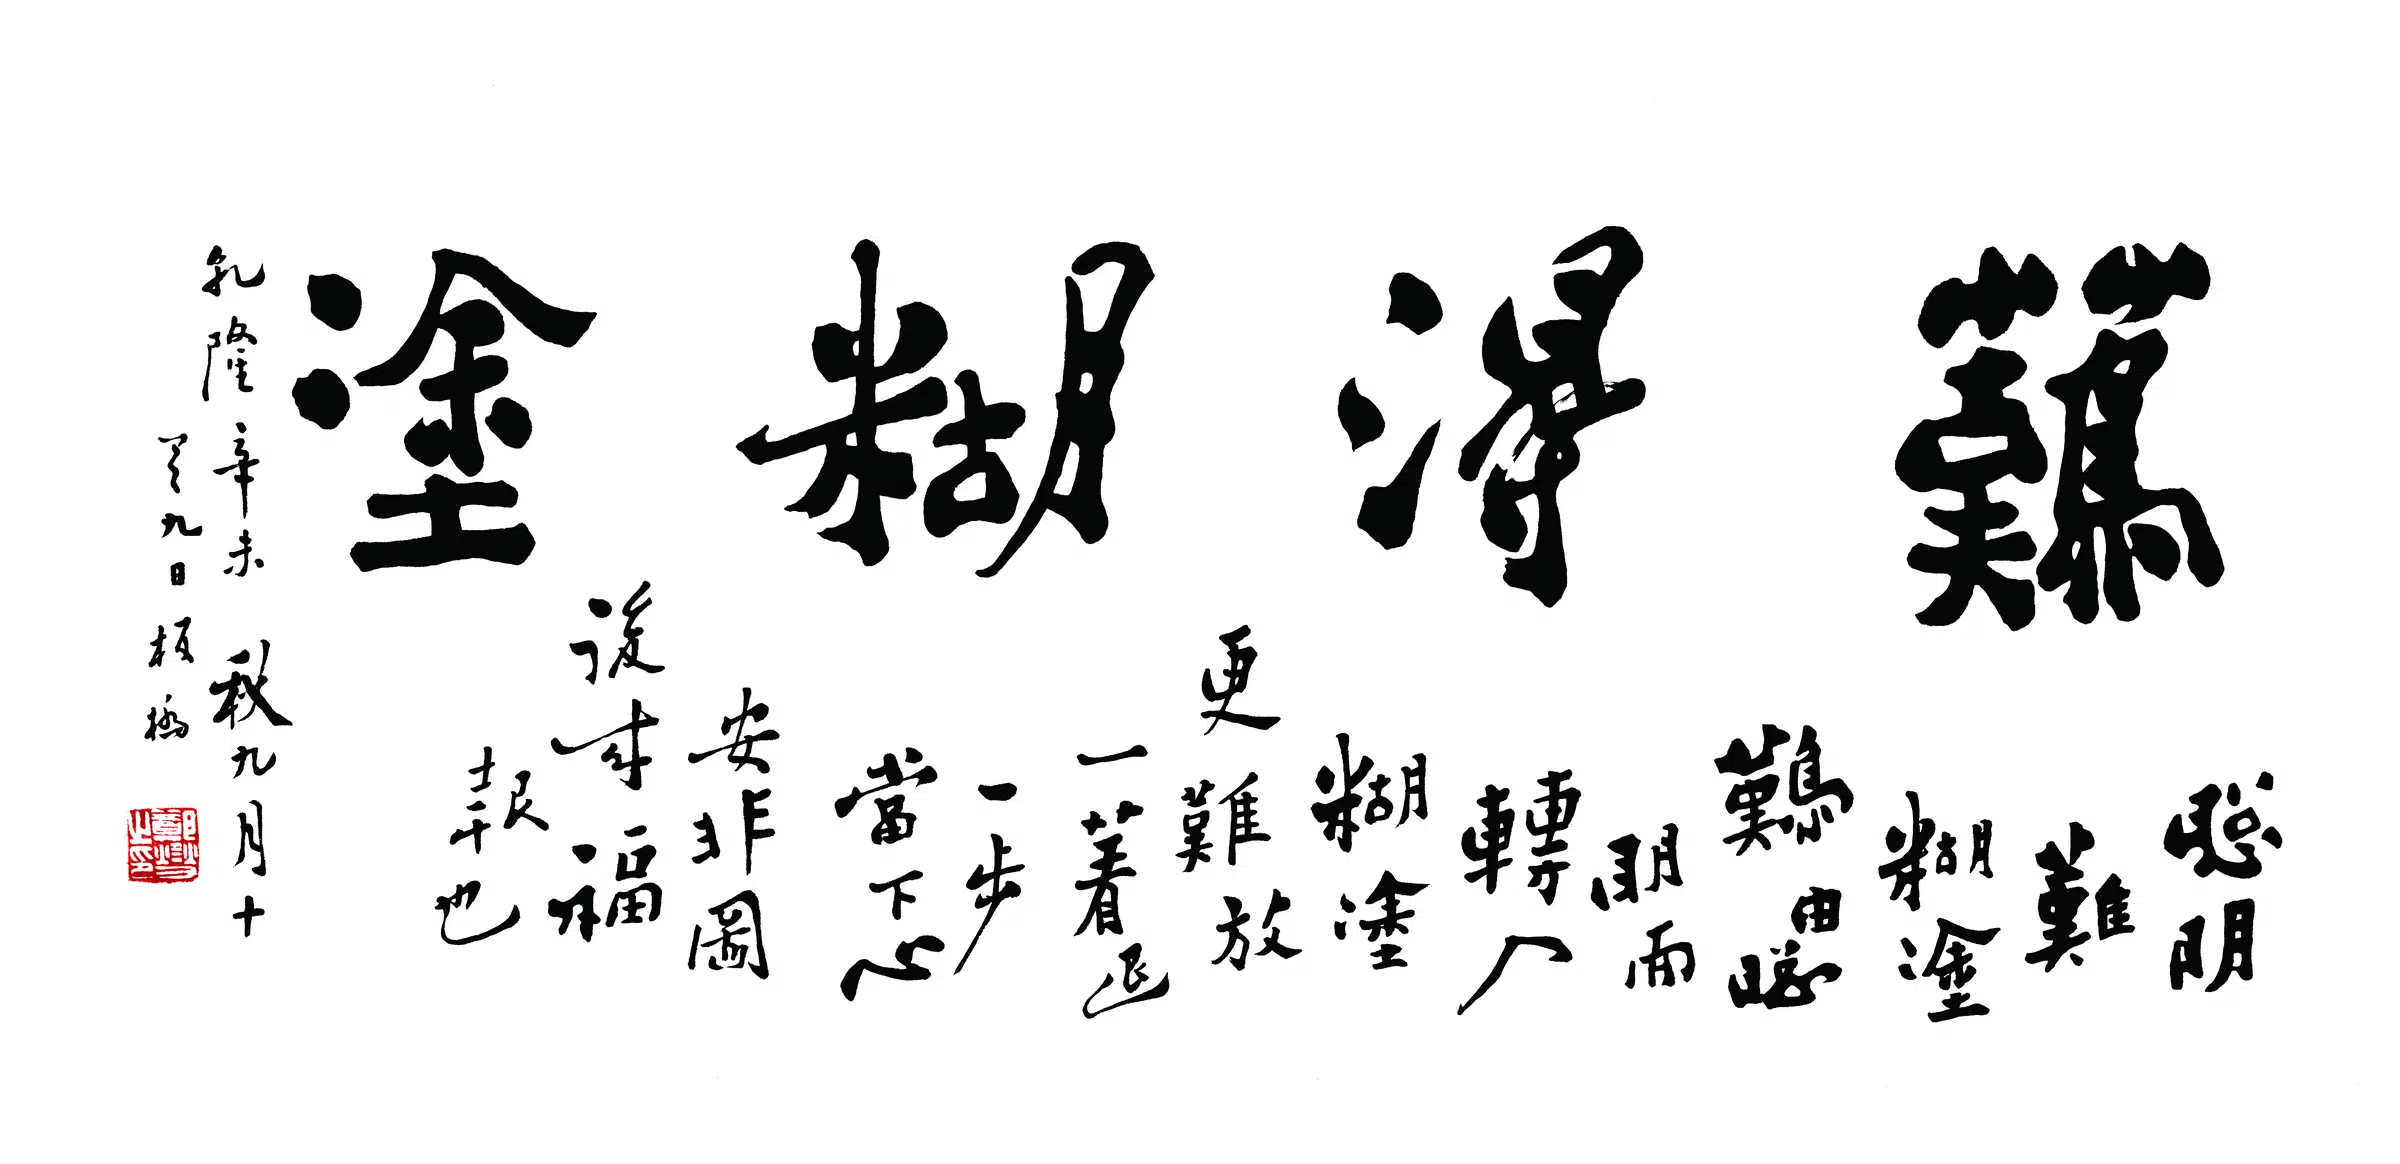 難得糊塗
聰明
難
糊塗
難由聰
明而
轉入
糊塗
更難放
一著退
一步
當下心
安非圖
後來福
報也
乾隆辛未秋九月十
九日板橋
鄭燮之印